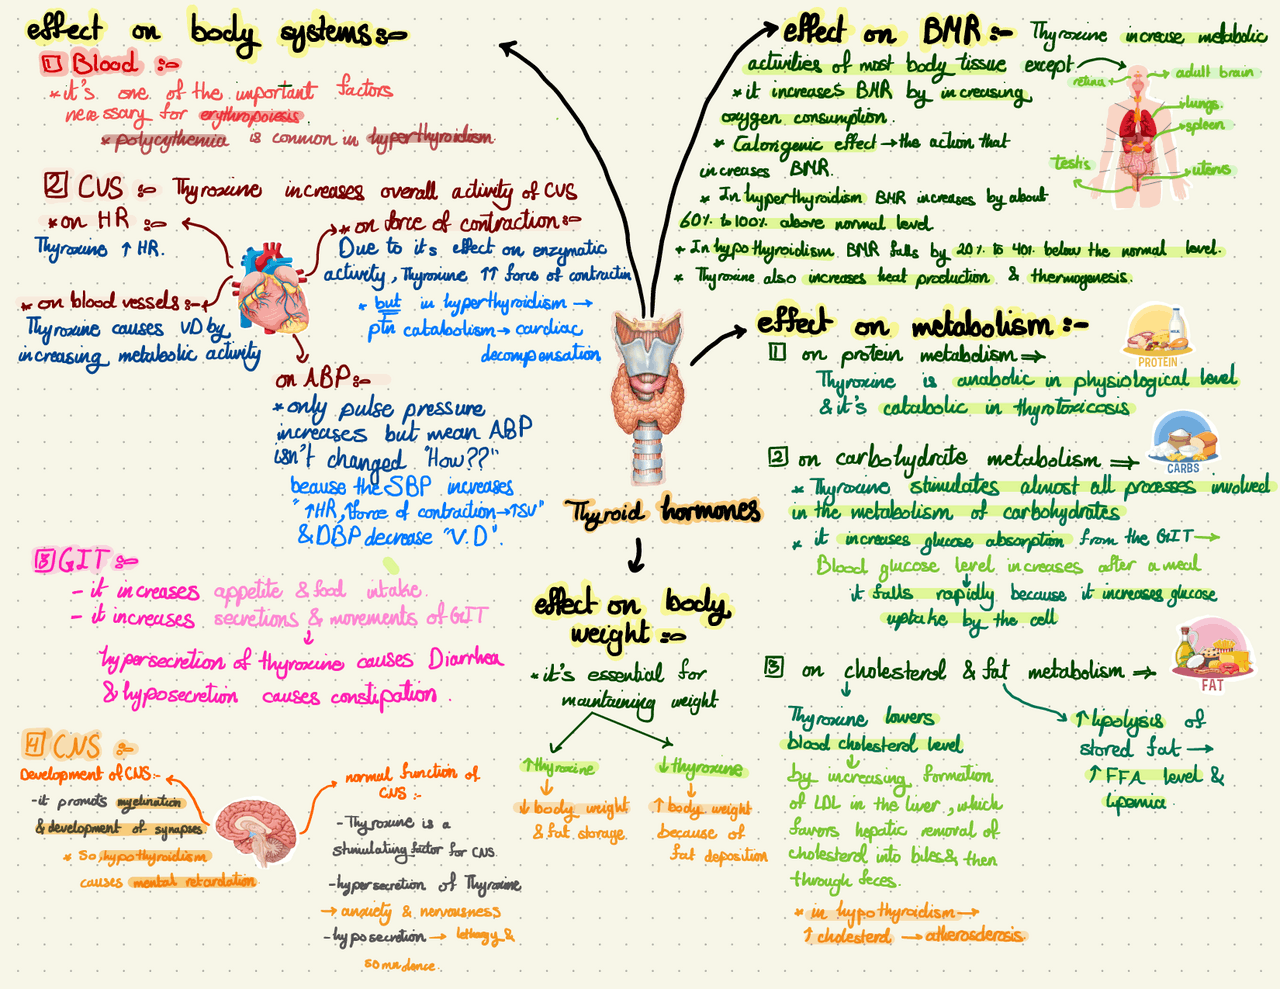 effect on body systems:-
1 Blood :-
* it's one of the important factors
necessary for erythropoiesis
* polycythemia is common in hyperthyroidism
2 CVS :- Thyroxine increases overall activity of CVS
* on HR :-
Thyroxine ↑ HR.
* on force of contraction:-
Due to it's effect on enzymatic
activity, Thyroxine ↑↑ force of contractin
* but in hyperthyroidism →
ptn catabolism → cardiac
decompensation
* on blood vessels:-
Thyroxine causes VD by
increasing metabolic activity
on ABP:-
* only pulse pressure
increases but mean ABP
isn't changed "How??"
beause the SBP increases
"↑HR, ↑force of contraction → ↑SV"
& DBP decrease "V.D"
3 GIT :-
- it increases appetite & food intake.
- it increases secretions & movements of GIT
↓
hypersecretion of thyroxine causes Diarrhea
& hyposecretion causes constipation.
4 CNS :-
Development of CNS:-
- it promots myelination
& development of synapses
* So hypothyroidism
causes mental retardation
normal function of
CNS :-
- Thyroxine is a
stimulating factor for CNS.
- hypersecretion of Thyroxine
→ anxiety & nervousness
- hyposecretion → lethargy &
somnolence.
Thyroid hormones
effect on body
weight :-
* it's essential for
maintaining weight
↑ thyroxine
↓
↓ body weight
& fat storage.
↓ thyroxine
↓
↑ body weight
because of
fat deposition
effect on BMR :- Thyroxine increase metabolic
activities of most body tissue except →
retina
adult brain
lungs
spleen
testis
uterus
* it increases BMR by increasing
oxygen consumption.
* Calorigenic effect → the action that
increases BMR.
* In hyperthyroidism BMR increases by about
60% to 100% above normal level.
* In hypothyroidism BMR falls by 20% to 40% below the normal level.
* Thyroxine also increases heat production & thermogenesis.
effect on metabolism :-
PROTEIN
1 on protein metabolism ⇒
Thyroxine is anabolic in physiological level
& it's catabolic in thyrotoxicosis
CARBS
2 on carbohydrate metabolism ⇒
* Thyroxine stimulates almost all processes involved
in the metabolism of carbohydrates
* it increases glucose absorption from the GIT →
Blood glucose level increases after a meal
↓
it falls rapidly because it increases glucose
uptake by the cell
FAT
3 on cholesterol & fat metabolism ⇒
Thyroxine lowers
blood cholesterol level
↓
by increasing formation
of LDL in the liver, which
favors hepatic removal of
cholesterol into bile & then
through feces.
* in hypothyroidism →
↑ cholesterol → atherosclerosis.
↑ lipolysis of
stored fat →
↑ FFA level &
lipemia